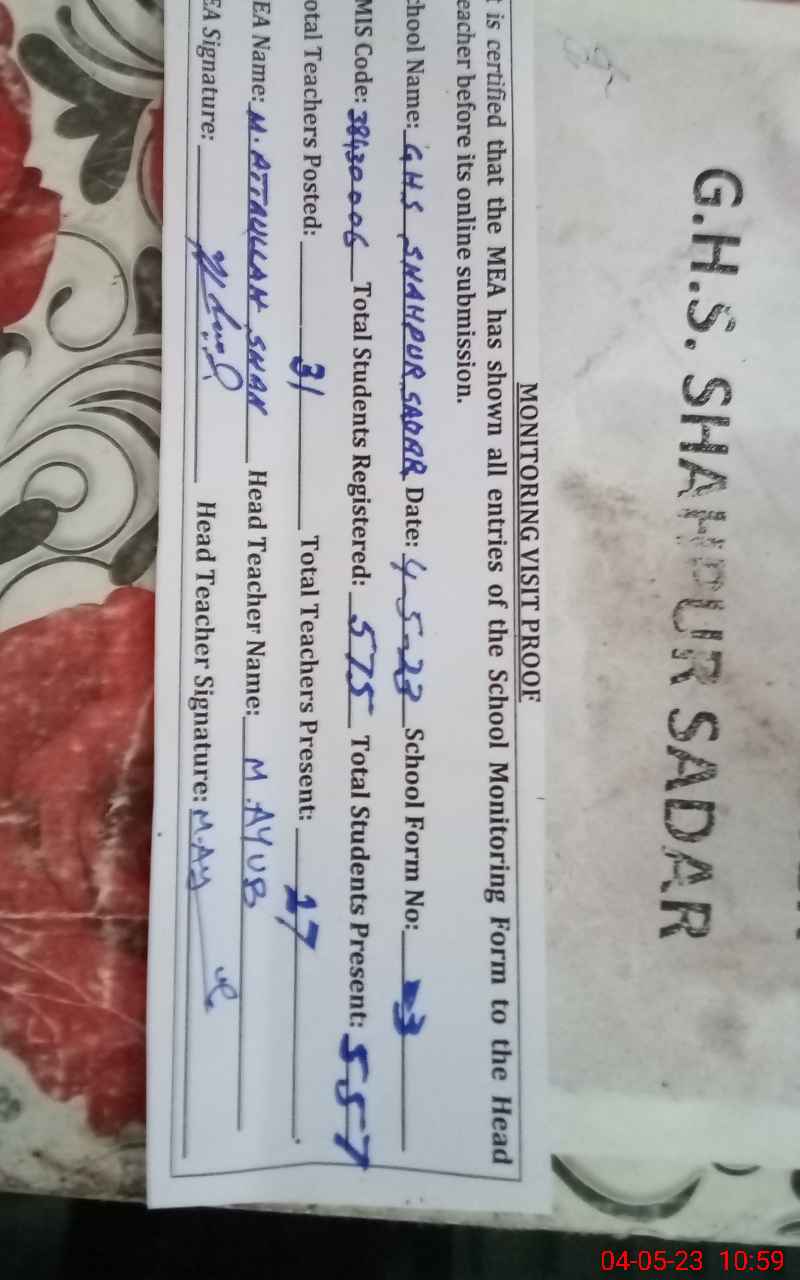 G.H.S. SHAHPUR SADAR
MONITORING VISIT PROOF
t is certified that the MEA has shown all entries of the School Monitoring Form to the Head
eacher before its online submission.
chool Name: G.H.S SHAHPUR SADAR Date: 4-5-23 School Form No: 3
MIS Code: 38430006 Total Students Registered: 575 Total Students Present: 557
otal Teachers Posted: 31 Total Teachers Present: 27
EA Name: M. ATTAULLAH SHAH Head Teacher Name: M. AYUB
EA Signature: Head Teacher Signature: M. Ay
04-05-23 10:59